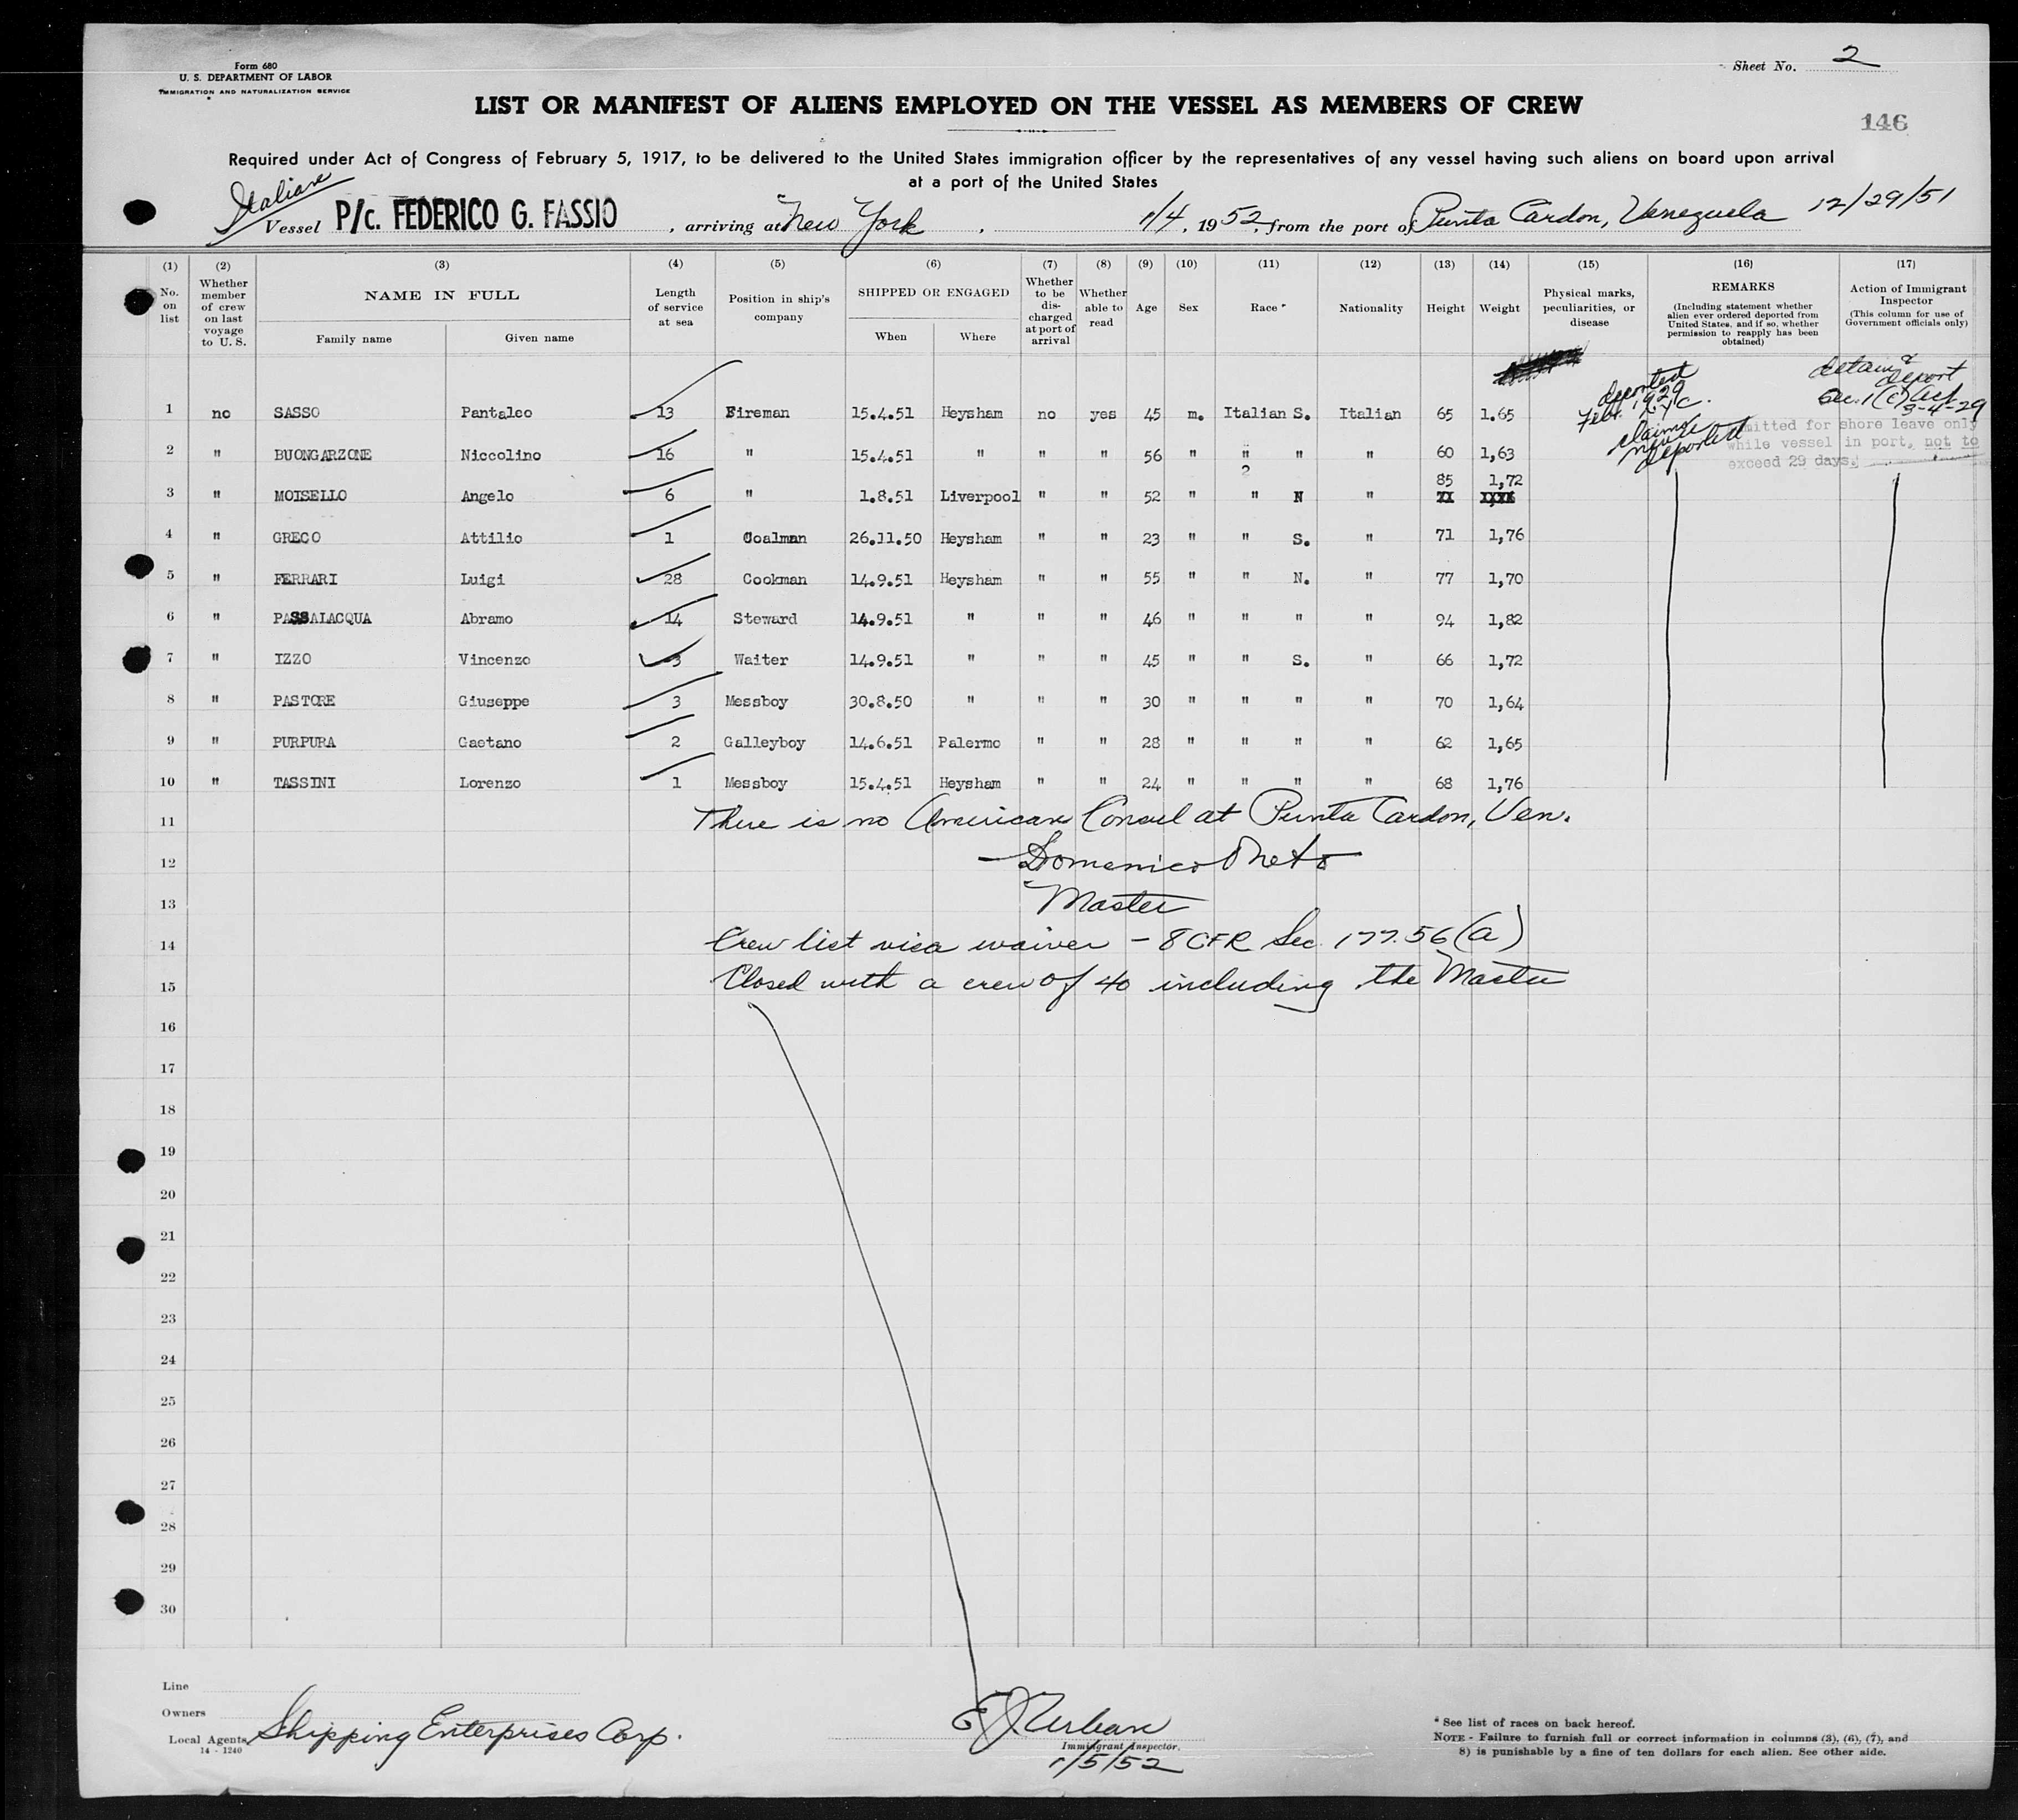 Form 680
U. S. DEPARTMENT OF LABOR
IMMIGRATION AND NATURALIZATION SERVICE
Sheet No. 2
LIST OR MANIFEST OF ALIENS EMPLOYED ON THE VESSEL AS MEMBERS OF CREW
146
Required under Act of Congress of February 5, 1917, to be delivered to the United States immigration officer by the representatives of any vessel having such aliens on board upon arrival
at a port of the United States
Italian
Vessel P/c. FEDERICO G. FASSIO, arriving at New York, 1/4, 1952, from the port of Punta Cardon, Venezuela 12/29/51
(1) (2) (3) (4) (5) (6) (7) (8) (9) (10) (11) (12) (13) (14) (15) (16) (17)
No. on list
Whether member of crew on last voyage to U. S.
NAME IN FULL
Family name Given name
Length of service at sea
Position in ship's company
SHIPPED OR ENGAGED
When Where
Whether to be discharged at port of arrival
Whether able to read
Age
Sex
Race *
Nationality
Height
Weight
Physical marks, peculiarities, or disease
REMARKS
(Including statement whether alien ever ordered deported from United States, and if so, whether permission to reapply has been obtained)
Action of Immigrant Inspector
(This column for use of Government officials only)
deported
Feb. 1929
N.Y.C.
detain &
deport
Sec. 1(c) Act
3-4-29
1 no SASSO Pantaleo 13 Fireman 15.4.51 Heysham no yes 45 m. Italian S. Italian 65 1.65
claims
never
deported
mitted for shore leave only
while vessel in port, not to
exceed 29 days.
2 " BUONGARZONE Niccolino 16 " 15.4.51 " " " 56 " " " " 60 1,63
85 1,72
3 " MOISELLO Angelo 6 " 1.8.51 Liverpool " " 52 " " N "
4 " GRECO Attilio 1 Coalman 26.11.50 Heysham " " 23 " " S. " 71 1,76
5 " FERRARI Luigi 28 Cookman 14.9.51 Heysham " " 55 " " N. " 77 1,70
6 " PASSALACQUA Abramo 14 Steward 14.9.51 " " " 46 " " " " 94 1,82
7 " IZZO Vincenzo 3 Waiter 14.9.51 " " " 45 " " S. " 66 1,72
8 " PASTORE Giuseppe 3 Messboy 30.8.50 " " " 30 " " " " 70 1,64
9 " PURPURA Gaetano 2 Galleyboy 14.6.51 Palermo " " 28 " " " " 62 1,65
10 " TASSINI Lorenzo 1 Messboy 15.4.51 Heysham " " 24 " " " " 68 1,76
11 There is no American Consul at Punta Cardon, Ven.
12 Domenico
13 Master
14 Crew list visa waiver - 8 CFR Sec. 177.56(a)
15 Closed with a crew of 40 including the Master
16
17
18
19
20
21
22
23
24
25
26
27
28
29
30
Line
Owners
Local Agents Shipping Enterprises Corp.
14 - 1240
E J Urban
Immigrant Inspector.
1/5/52
* See list of races on back hereof.
NOTE - Failure to furnish full or correct information in columns (3), (6), (7), and
8) is punishable by a fine of ten dollars for each alien. See other aide.